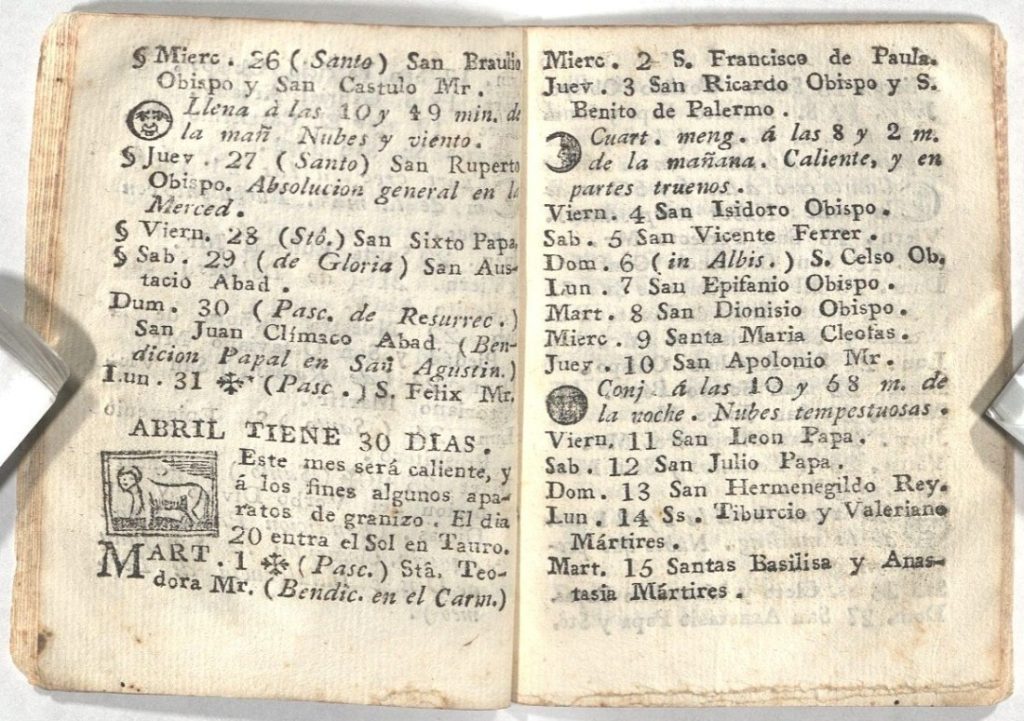 § Mierc. 26 (Santo) San Braulio
Obispo y San Castulo Mr.
Llena à las 10 y 49 min. de
la mañ. Nubes y viento.
§ Juev. 27 (Santo) San Ruperto
Obispo. Absolucion general en la
Merced.
§ Viern. 28 (Stô.) San Sixto Papa.
§ Sab. 29 (de Gloria) San Aus-
tacio Abad.
Dum. 30 (Pasc. de Resurrec.)
San Juan Clímaco Abad (Ben-
dicion Papal en San Agustin.)
Lun. 31 ✠ (Pasc.) S. Felix Mr.
ABRIL TIENE 30 DIAS.
Este mes será caliente, y
á los fines algunos apa-
ratos de granizo. El dia
20 entra el Sol en Tauro.
MART. 1 ✠ (Pasc.) Stâ. Teo-
dora Mr. (Bendic. en el Carm.)
Mierc. 2 S. Francisco de Paula.
Juev. 3 San Ricardo Obispo y S.
Benito de Palermo.
Cuart. meng. á las 8 y 2 m.
de la mañana. Caliente, y en
partes truenos.
Viern. 4 San Isidoro Obispo.
Sab. 5 San Vicente Ferrer.
Dom. 6 (in Albis.) S. Celso Ob.
Lun. 7 San Epifanio Obispo.
Mart. 8 San Dionisio Obispo.
Mierc. 9 Santa Maria Cleofas.
Juev. 10 San Apolonio Mr.
Conj á las 10 y 58 m. de
la noche. Nubes tempestuosas.
Viern. 11 San Leon Papa.
Sab. 12 San Julio Papa.
Dom. 13 San Hermenegildo Rey.
Lun. 14 Ss. Tiburcio y Valeriano
Mártires.
Mart. 15 Santas Basilisa y Anas-
tasia Mártires.